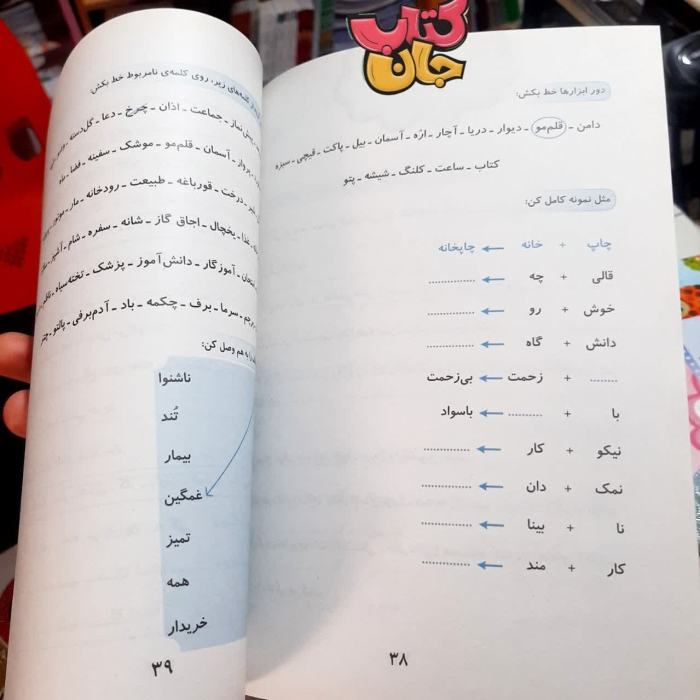 کتاب
جان
دور ابزارها خط بکش:
دامن ـ قلم‌مو ـ دیوار ـ دریا ـ آچار ـ ارّه ـ آسمان ـ بیل ـ پاکت ـ قیچی ـ سبزه
کتاب ـ ساعت ـ کلنگ ـ شیشه ـ پتو
مثل نمونه کامل کن:
چاپ + خانه ← چاپخانه
قالی + چه ← ..............
خوش + رو ← ..............
دانش + گاه ← ..............
........ + زحمت ← بی‌زحمت
با + .......... ← باسواد
نیکو + کار ← ..............
نمک + دان ← ..............
نا + بینا ← ..............
کار + مند ← ..............
۳۸
کلمه‌های زیر، روی کلمه‌ی نامربوط خط بکش:
جماعت ـ اذان ـ چرخ ـ دعا ـ گل‌دسته
پرواز ـ آسمان ـ قلم‌مو ـ موشک ـ سفینه ـ فضا ـ ماه
درخت ـ قورباغه ـ طبیعت ـ رودخانه ـ مار
غذا ـ یخچال ـ اجاق گاز ـ شانه ـ سفره ـ شام
آموزگار ـ دانش‌آموز ـ پزشک ـ تخته‌سیاه
سرما ـ برف ـ چکمه ـ باد ـ آدم‌برفی ـ پالتو ـ چتر
به هم وصل کن:
ناشنوا
تُند
بیمار
غمگین
تمیز
همه
خریدار
۳۹